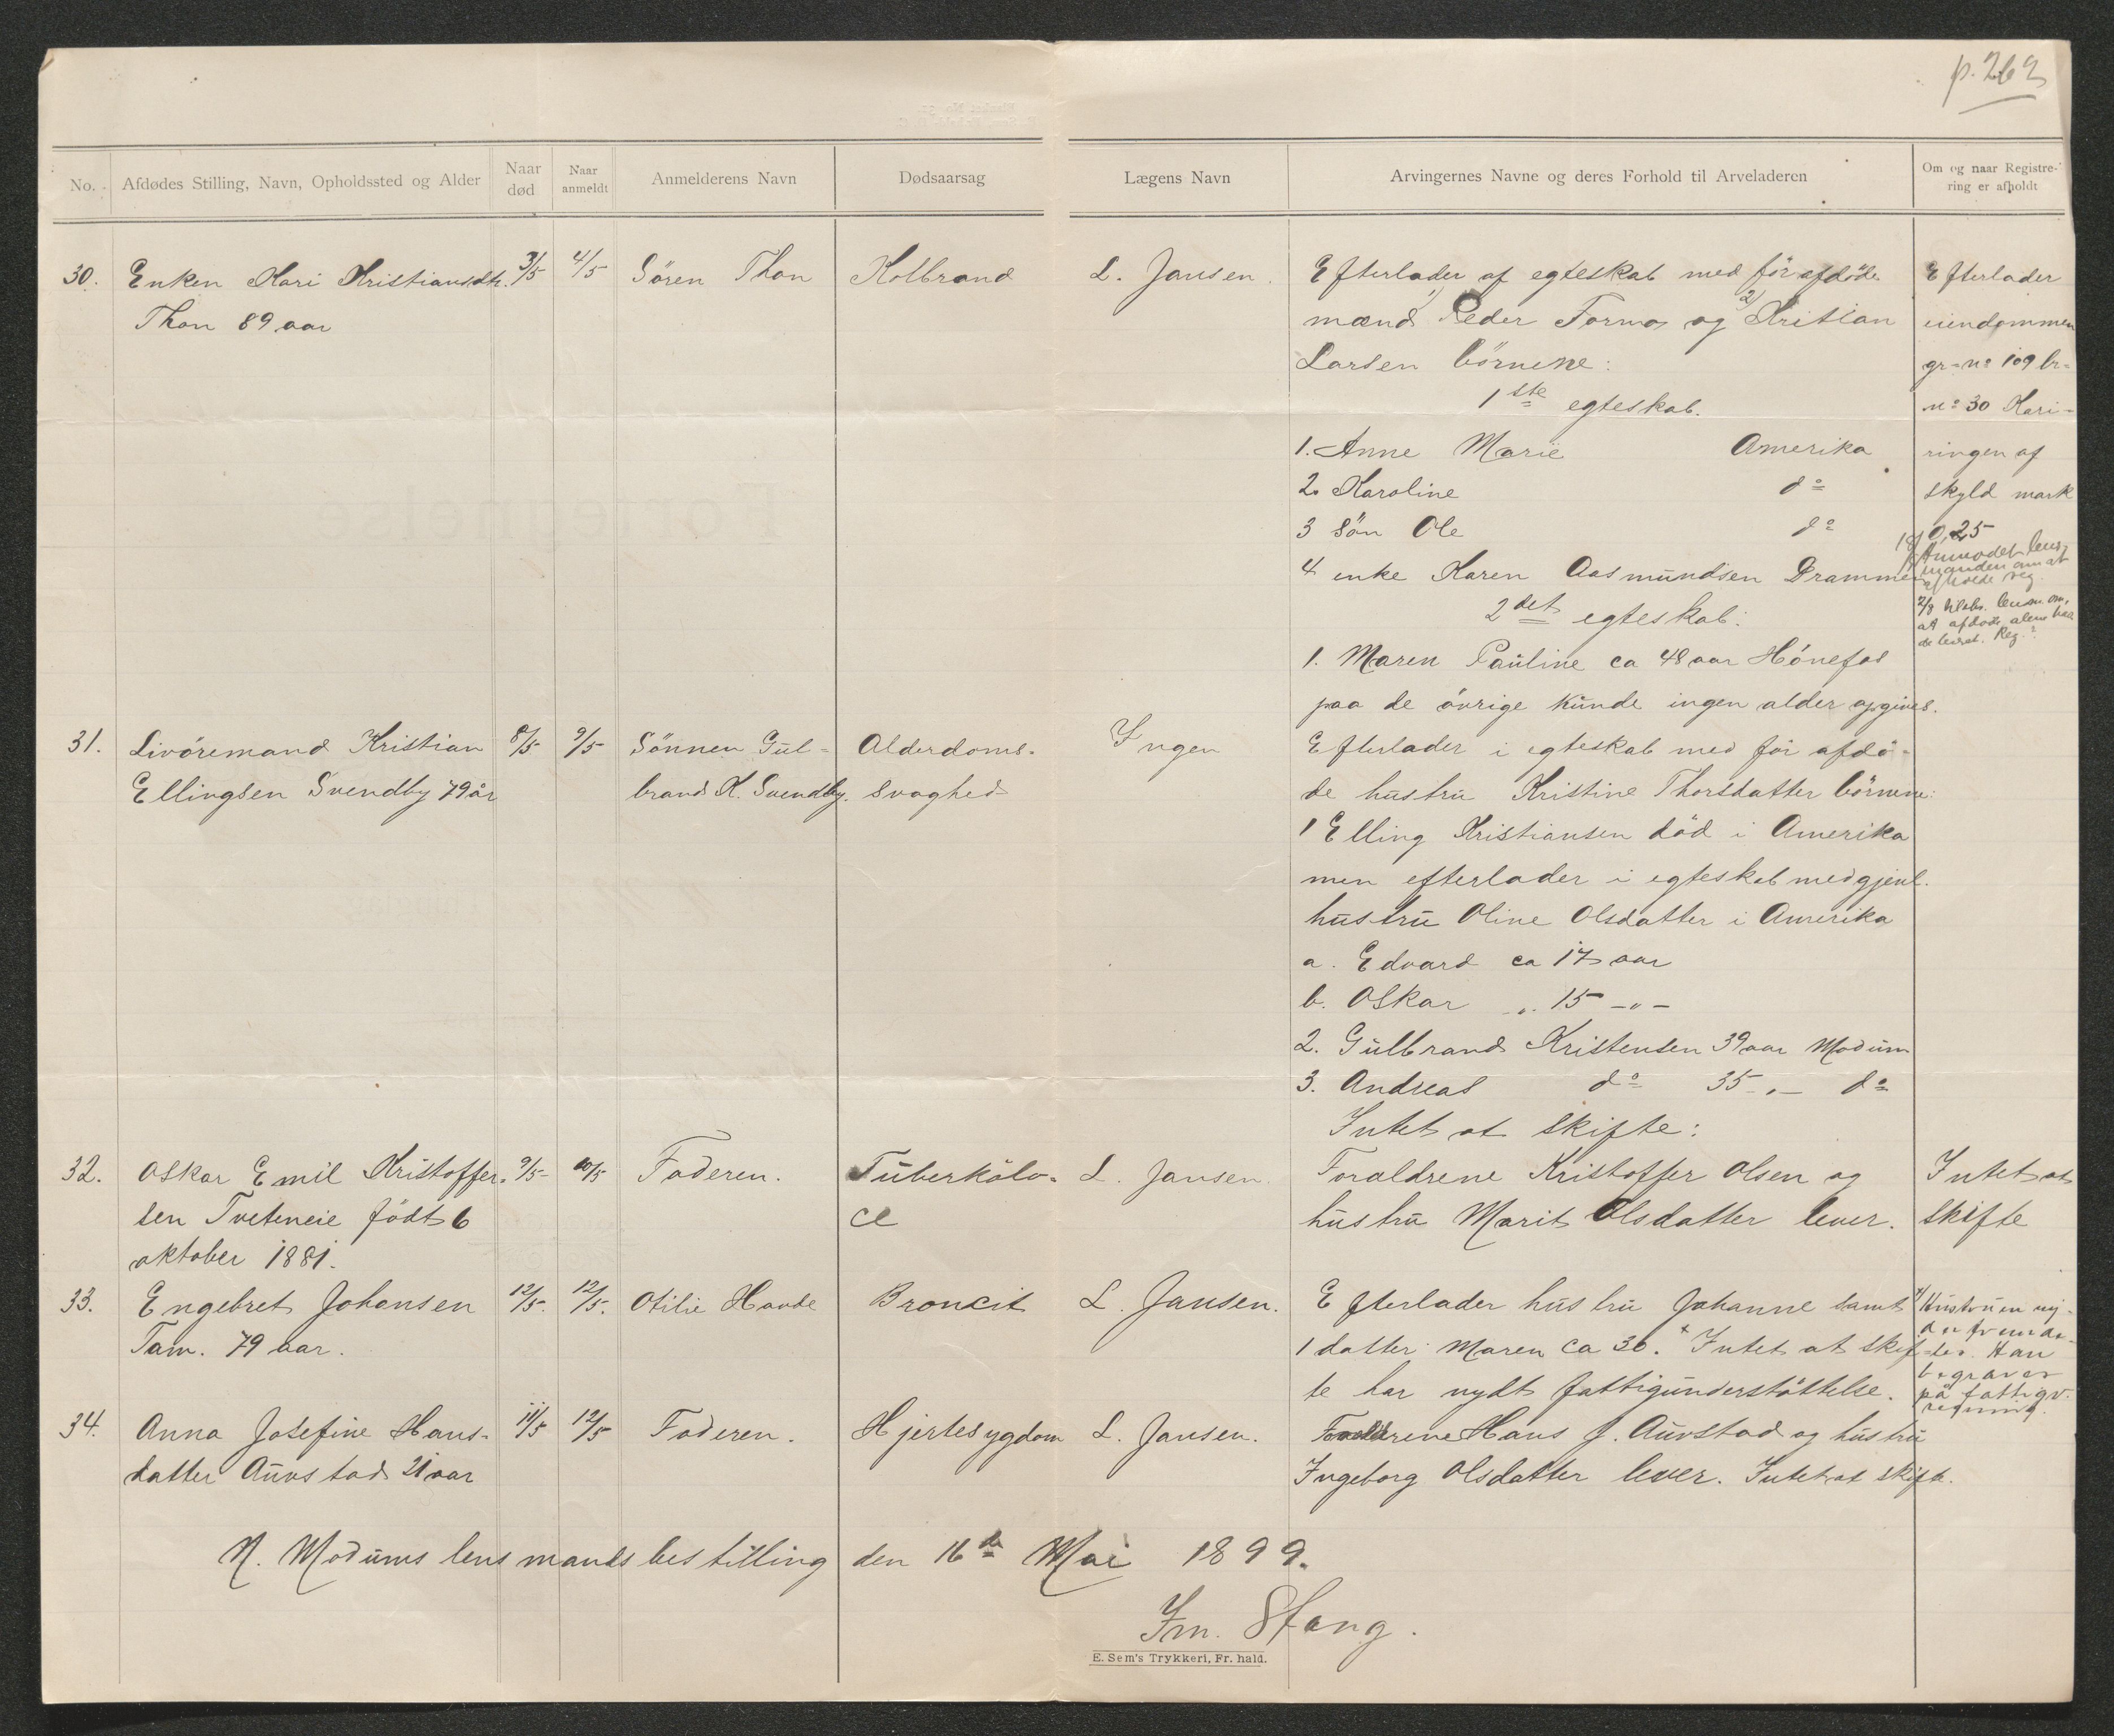 p. 262
No.
Afdødes Stilling, Navn, Opholdssted og Alder
Naar død
Naar anmeldt
Anmelderens Navn
Dødsaarsag
Lægens Navn
Arvingernes Navne og deres Forhold til Arveladeren
Om og naar Registre-
ring er afholdt
30.
Enken Kari Kristiansdtr.
Thon 89 aar
3/5
4/5
Sören Thon
Kolbrand
L. Jansen.
Efterlader af egteskab med för afdöde
mænd 1) Peder Formo og 2) Kristian
Larsen börnene:
1ste egteskab.
1. Anne Marie Amerika
2. Karoline do
3 Sön Ole do
4 enke Karen Aasmundsen Drammen
2det egteskab:
1. Maren Pauline ca 48 aar Hönefos
paa de övrige kunde ingen alder opgives.
Efterlader
eiendommen
gr-no 109 br-
no 30 Kari-
ringen af
skyld mark
0,25
Anmodet lens-
manden om at
afholde reg.
31.
Livöremand Kristian
Ellingsen Svendby 79 år
8/5
9/5
Sönnen Gul-
brand K. Svendby.
Alderdoms-
svaghed
Ingen
Efterlader i egteskab med för afdö-
de hustru Kristine Thorsdatter börnene:
1 Elling Kristiansen död i Amerika
men efterlader i egteskab med gjenl.
hustru Oline Olsdatter i Amerika
a. Edvard ca 17 aar
b. Oskar „ 15 -„-
2. Gulbrand Kristensen 39 aar Modum
3. Andreas do 35 -„- do
Intet at skifte:
32.
Oskar Emil Kristoffer-
sen Tveteneie födt 6
oktober 1881.
9/5
10/5
Faderen.
Tuberkolo-
ce
L. Jansen.
Foraldrene Kristoffer Olsen og
hustru Marit Olsdatter lever.
Intet at
skifte
33.
Engebret Johansen
Tam. 79 aar.
12/5
12/5.
Otilie Hovde
Broncit
L. Jansen.
Efterlader hustru Johanne samt
1 datter Maren ca 36. x Intet at skif-
te har nydt fattigunderstöttelse.
x) Hustruen ny-
der fremde-
les. Han
begraves
på fattigv.
regning.
34.
Anna Josefine Hans-
datter Aurstad 21 aar
11/5
12/5
Faderen.
Hjertesygdom
L. Jansen.
Forældrene Hans J. Aurstad og hustru
Ingeborg Olsdatter lever. Intet at skifte.
N. Modums lensmandsbestilling den 16de Mai 1899.
Im. Stang.
E. Sem's Trykkeri, Fr. hald.